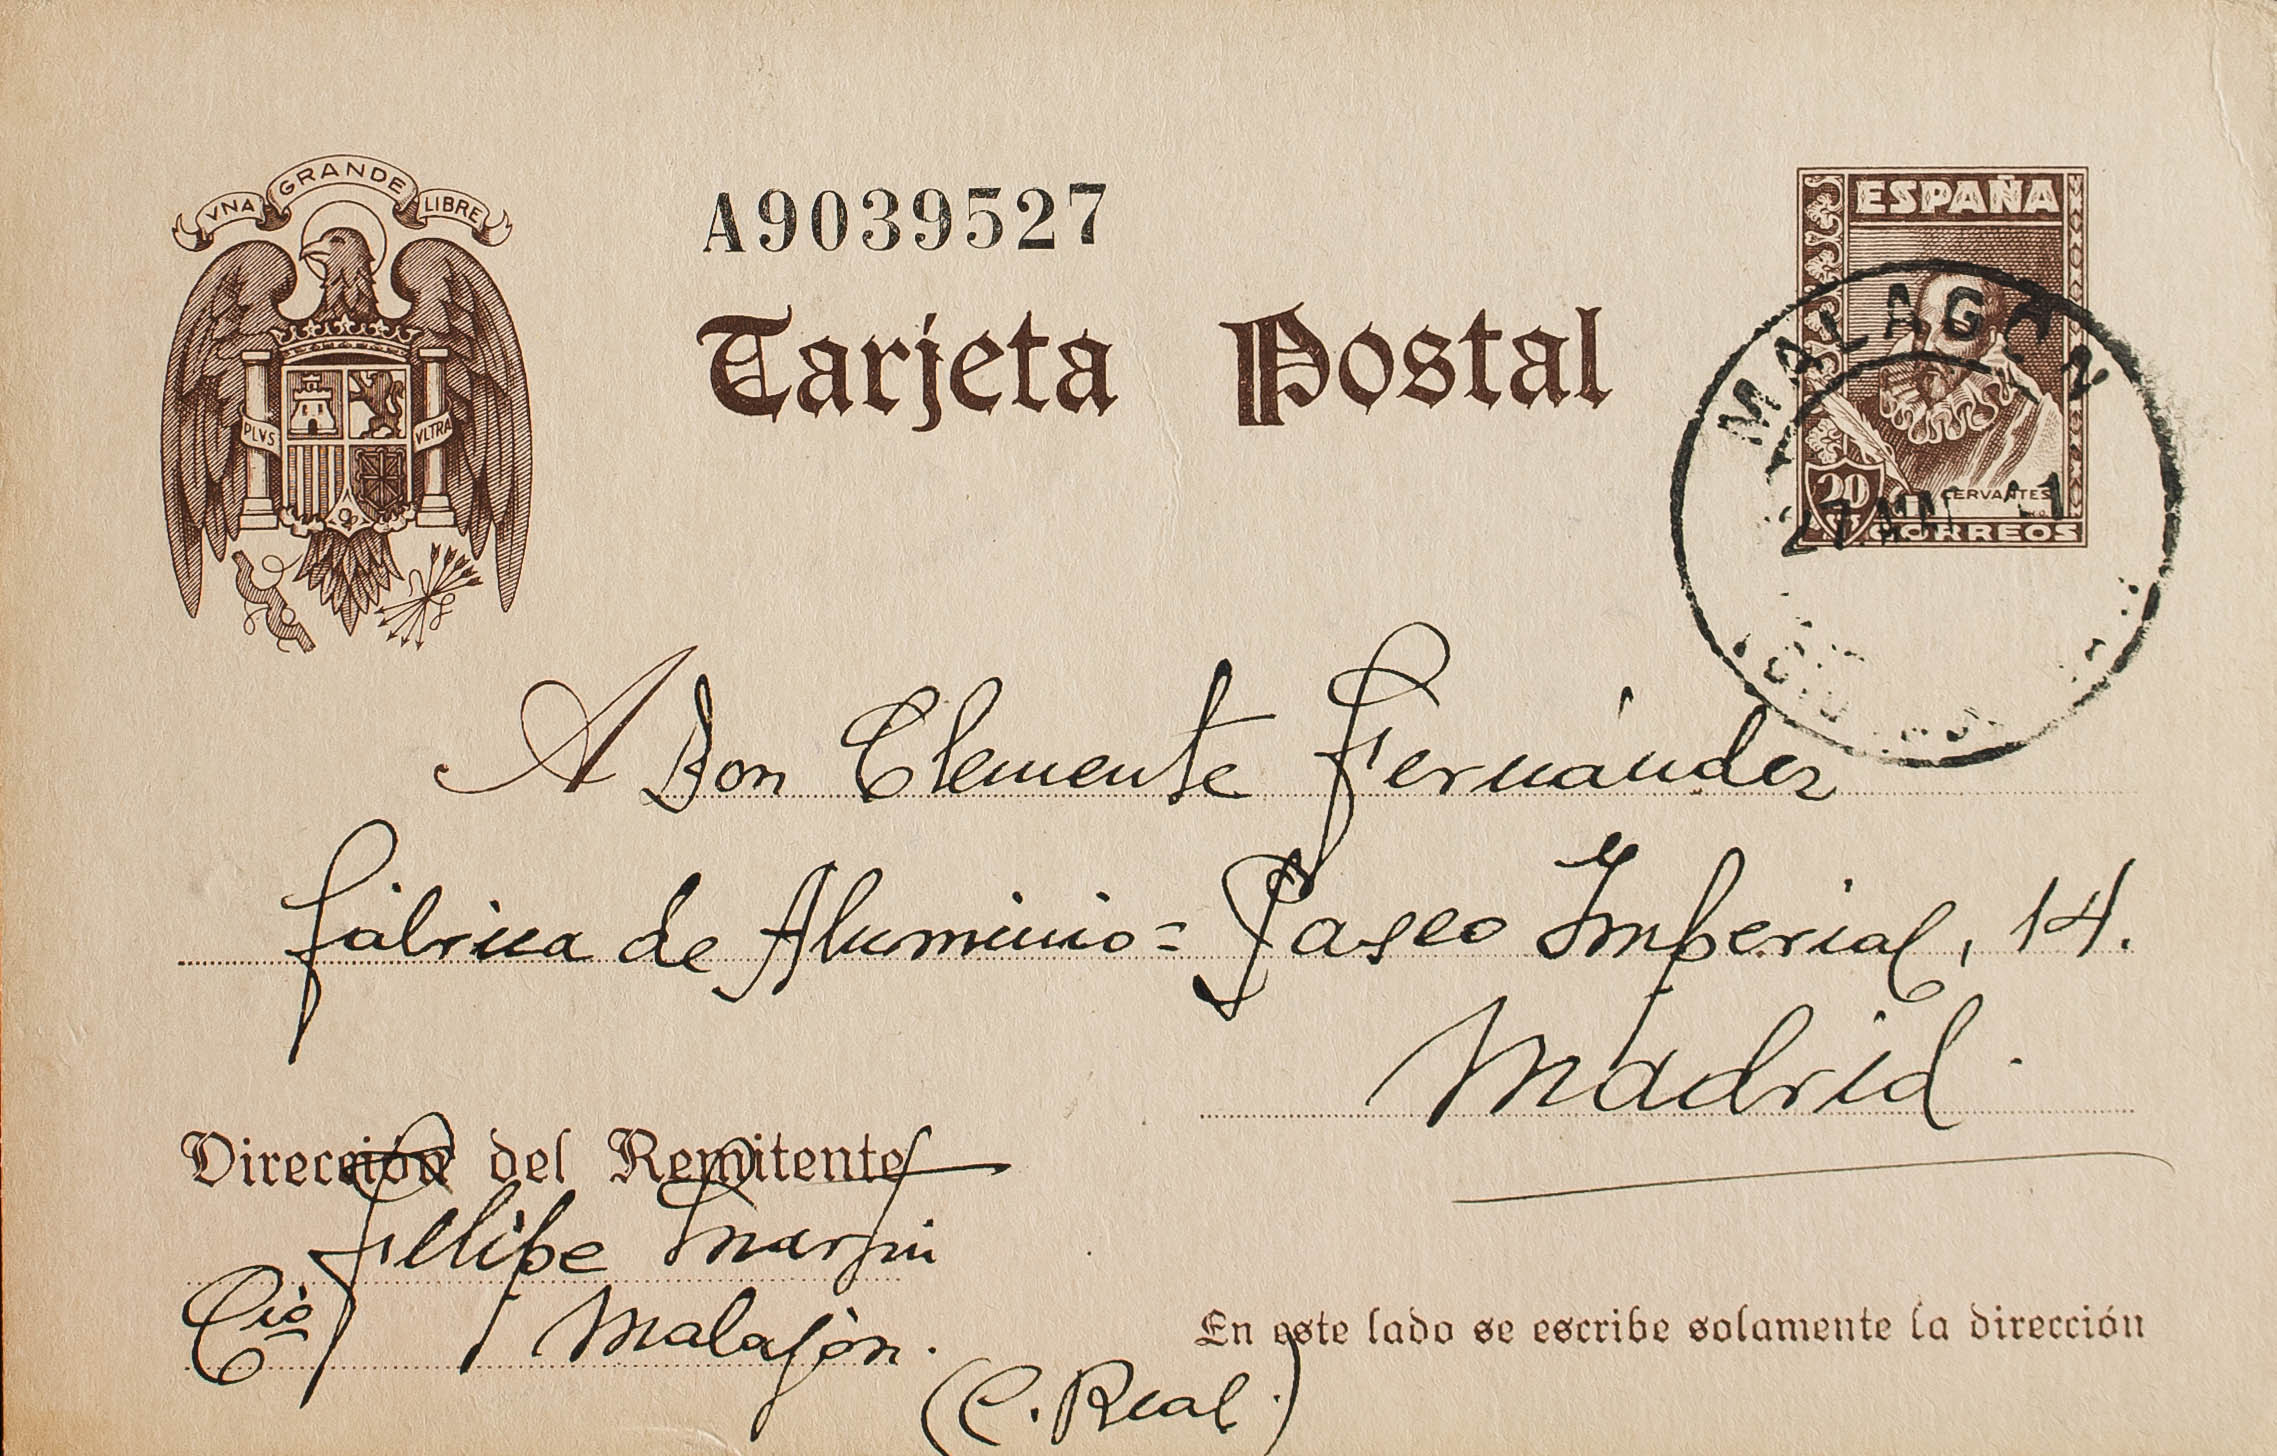 VNA GRANDE LIBRE
A9039527
ESPAÑA
Tarjeta Postal
MALAGON
PLVS VLTRA
20
CERVANTES
27
CORREOS
A Don Clemente Fernández
fábrica de Aluminio = Paseo Imperial, 14.
Madrid.
Dirección del Remitente
Felipe Martin
Malagón.
En este lado se escribe solamente la dirección
(C. Real.)